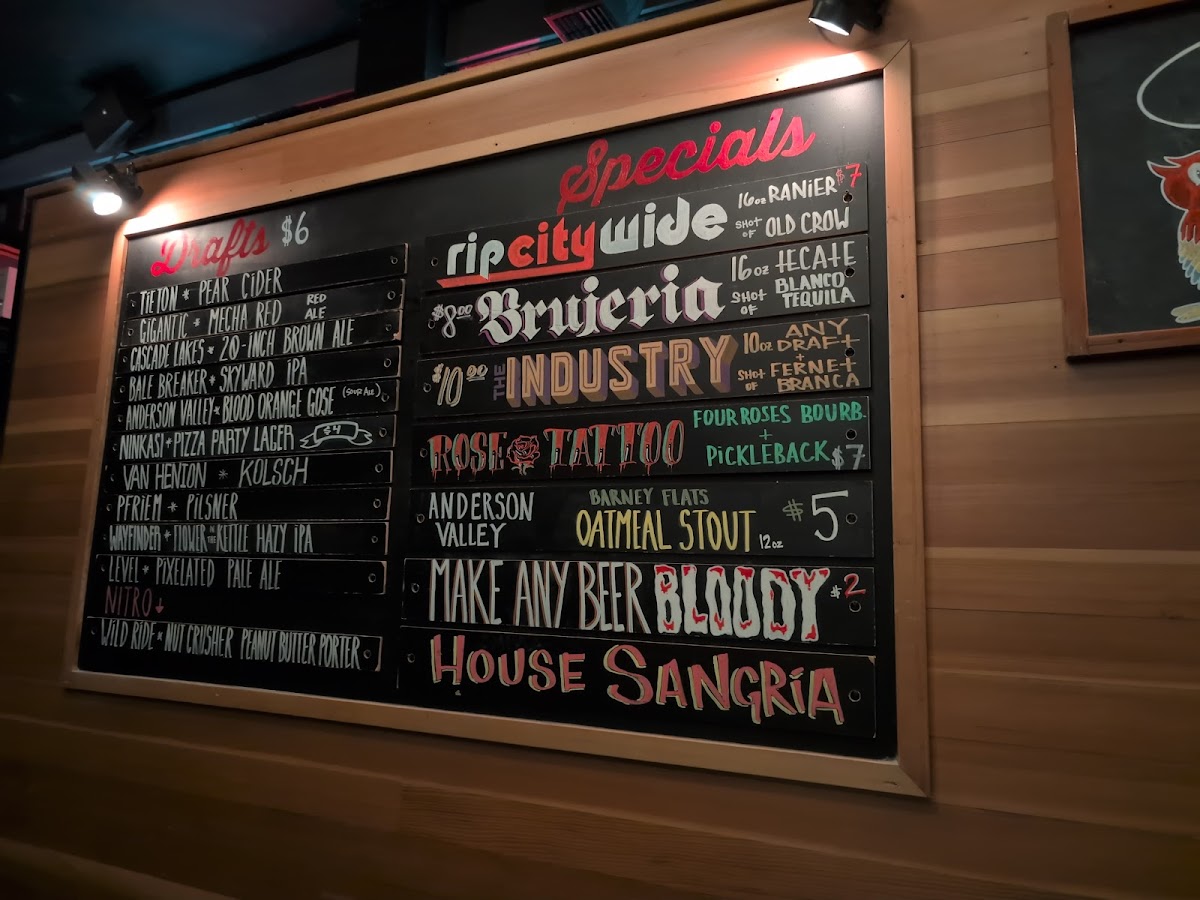 Drafts $6
TIETON * PEAR CIDER
GIGANTIC * MECHA RED RED ALE
CASCADE LAKES * 20-INCH BROWN ALE
BALE BREAKER * SKYWARD IPA
ANDERSON VALLEY * BLOOD ORANGE GOSE (SOUR ALE)
NINKASI * PIZZA PARTY LAGER $4
VAN HENION * KOLSCH
PFRIEM * PILSNER
WAYFINDER * FLOWER IN THE KETTLE HAZY IPA
LEVEL * PIXELATED PALE ALE
NITRO ↓
WILD RIDE * NUT CRUSHER PEANUT BUTTER PORTER
Specials
rip city wide 16oz RANIER $7
SHOT OF OLD CROW
$8.00 Brujeria 16oz TECATE
SHOT OF BLANCO TEQUILA
$10.00 THE INDUSTRY 10oz ANY DRAFT
+
SHOT OF FERNET BRANCA
ROSE TATTOO FOUR ROSES BOURB.
+
PICKLEBACK $7
ANDERSON VALLEY BARNEY FLATS
OATMEAL STOUT 12oz $5
MAKE ANY BEER BLOODY $2
HOUSE SANGRIA